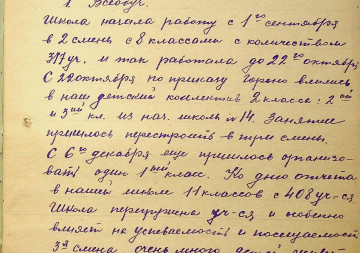 1. Всеобуч.
Школа начала работу с 1го сентября
в 2 смены с 8 классами с количеством
317 уч. и так работала до 22го октября
С 22 октября по приказу Гороно влились
в наш детский коллектив 2 класса: 2ой
и 3ий кл. из нач. школы № 14. Занятие
пришлось перестроить в три смены.
С 6го декабря еще пришлось организо-
вать один 1ый класс. Ко дню отчета
в нашей школе 11 классов с 408 уч-ся.
Школа перегружена уч-ся и особенно
влияет на успеваемость и посещаемость
3я смена очень много детей